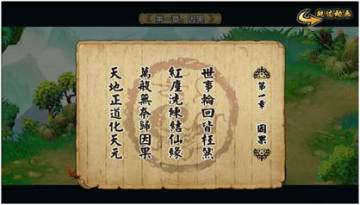 《第一章 因果》
跳过动画
第一章 因果
世事輪回皆枉然
紅塵洗練結仙緣
萬般無奈歸因果
天地正道化天元